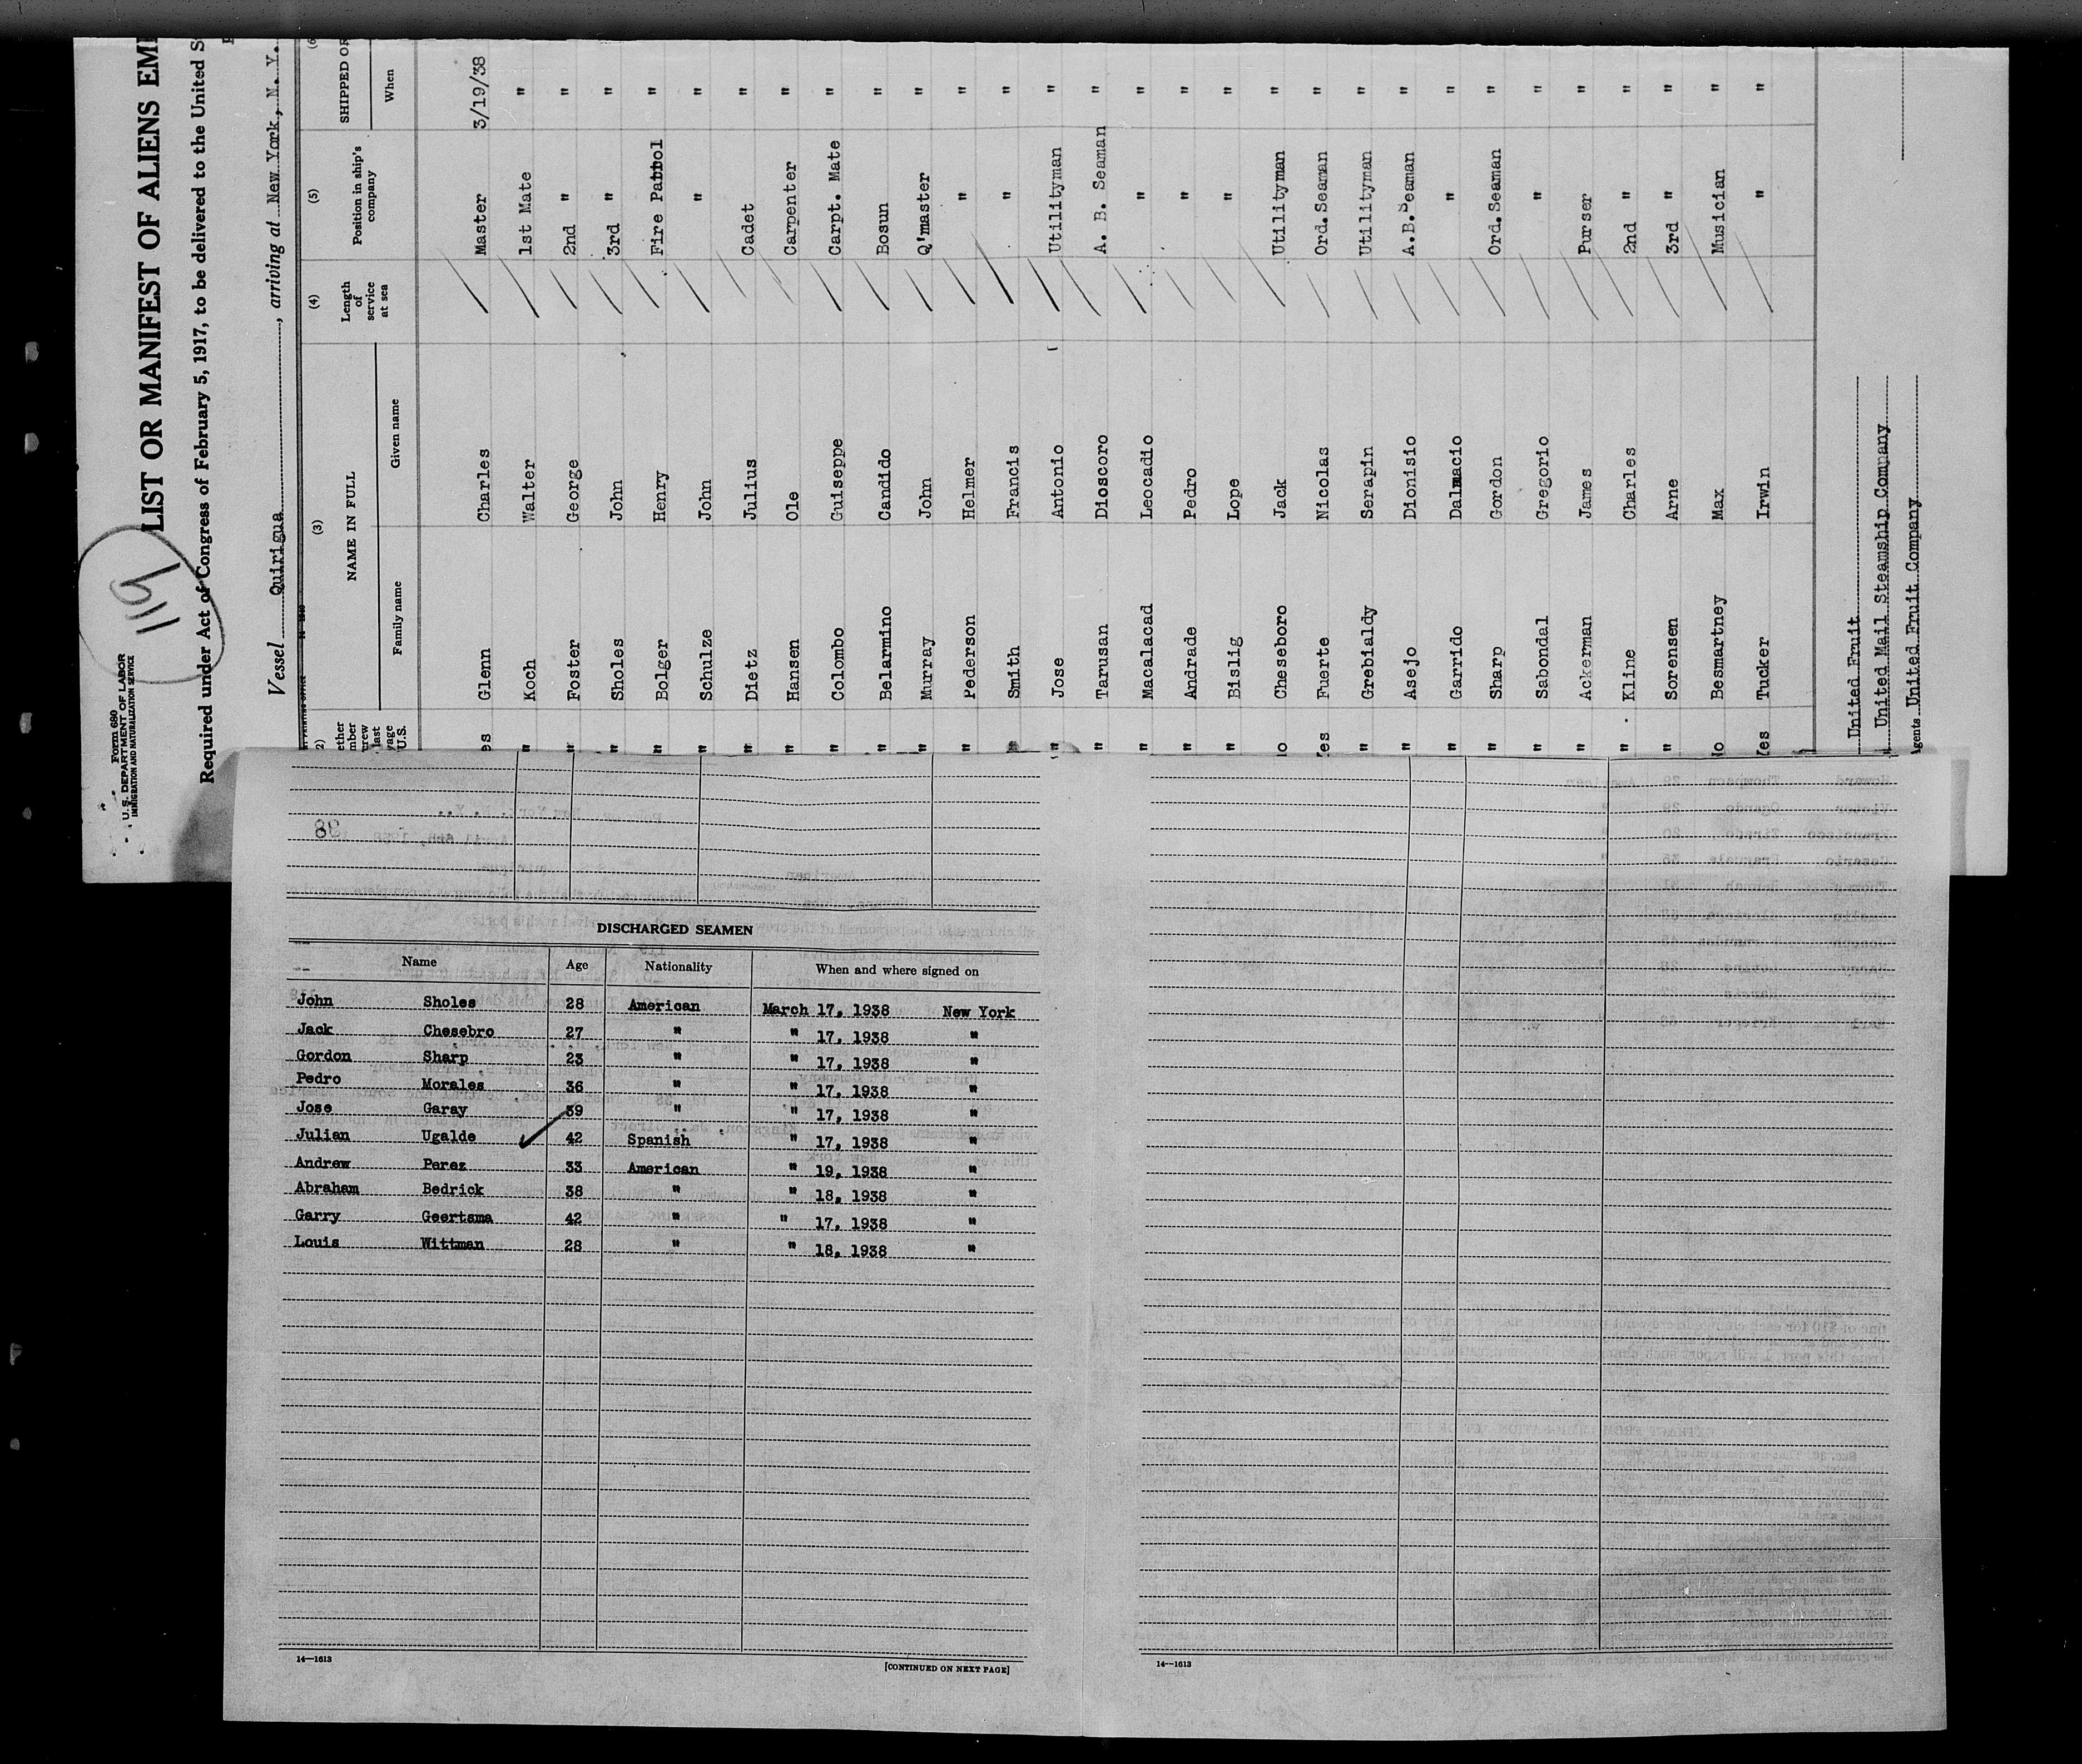 119
Form 680
U. S. DEPARTMENT OF LABOR
IMMIGRATION AND NATURALIZATION SERVICE
LIST OR MANIFEST OF ALIENS EM
Required under Act of Congress of February 5, 1917, to be delivered to the United S
Vessel Quirigua, arriving at New York, N. Y.
(3) (4) (5)
NAME IN FULL Length of service at sea Position in ship's company SHIPPED OR
Family name Given name When
es Glenn Charles Master 3/19/38
" Koch Walter 1st Mate "
" Foster George 2nd " "
" Sholes John 3rd " "
" Bolger Henry Fire Patrol "
" Schulze John " "
" Dietz Julius Cadet "
" Hansen Ole Carpenter "
" Colombo Guiseppe Carpt. Mate "
" Belarmino Candido Bosun "
" Murray John Q'master "
" Pederson Helmer " "
" Smith Francis " "
" Jose Antonio Utilityman "
" Tarusan Dioscoro A. B. Seaman "
" Macalacad Leocadio " "
" Andrade Pedro " "
" Bislig Lope " "
lo Cheseboro Jack Utilityman "
Yes Fuerte Nicolas Ord. Seaman "
" Grebialdy Serapin Utilityman "
" Asejo Dionisio A.B.Seaman "
" Garrido Dalmacio " "
" Sharp Gordon Ord.Seaman "
" Sabondal Gregorio " "
" Ackerman James Purser "
" Kline Charles 2nd " "
" Sorensen Arne 3rd " "
lo Besmartney Max Musician "
Yes Tucker Irwin " "
United Fruit
United Mail Steamship Company
Agents United Fruit Company
DISCHARGED SEAMEN
Name Age Nationality When and where signed on
John Sholes 28 American March 17, 1938 New York
Jack Chesebro 27 " " 17, 1938 "
Gordon Sharp 23 " " 17, 1938 "
Pedro Morales 36 " " 17, 1938 "
Jose Garay 39 " " 17, 1938 "
Julian Ugalde 42 Spanish " 17, 1938 "
Andrew Perez 33 American " 19, 1938 "
Abraham Bedrick 38 " " 18, 1938 "
Garry Geertsma 42 " " 17, 1938 "
Louis Wittman 28 " " 18, 1938 "
14—1613
[CONTINUED ON NEXT PAGE]
14—1613